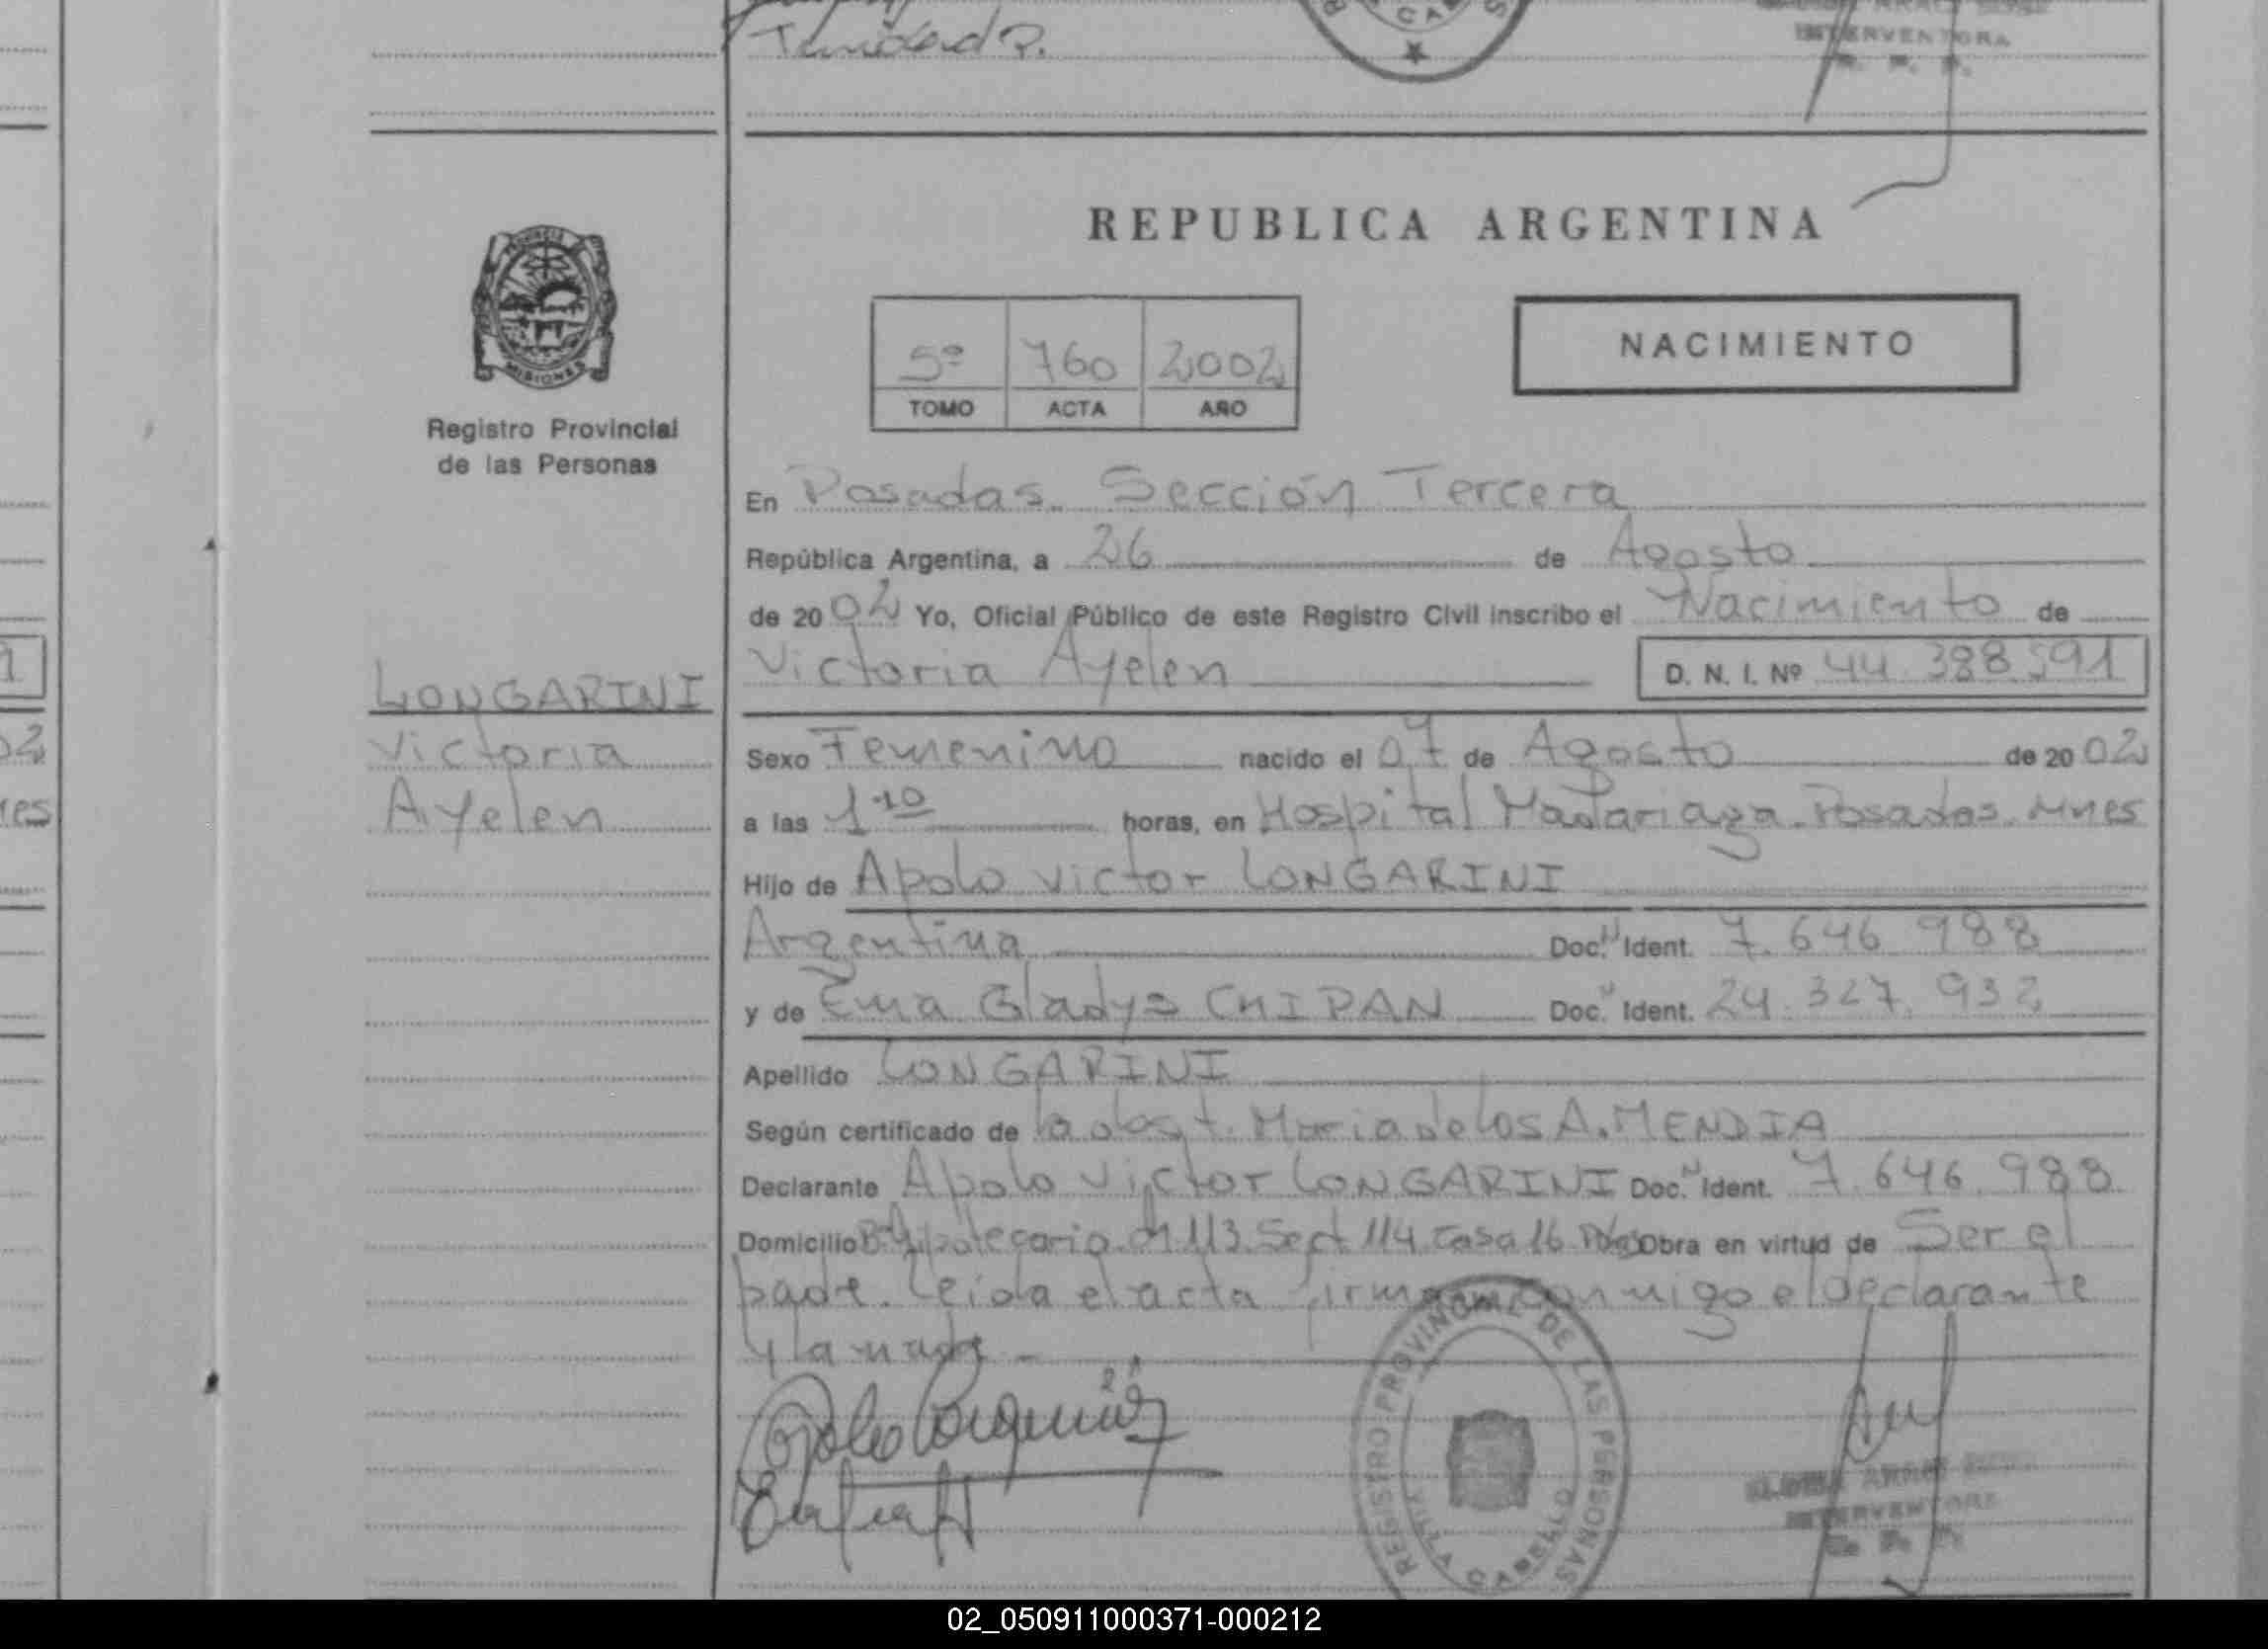 Trinidad P.
INTERVENTORA
REPUBLICA ARGENTINA
PROVINCIA
MISIONES
5º 760 2002
TOMO ACTA AÑO
NACIMIENTO
Registro Provincial
de las Personas
En Posadas. Sección Tercera
República Argentina, a 26 de Agosto
de 2002 Yo, Oficial Público de este Registro Civil inscribo el Nacimiento de
Victoria Ayelen D. N. I. Nº 44.388.591
LONGARINI
Victoria
Ayelen
Sexo Femenino nacido el 07 de Agosto de 2002
a las 1.10 horas, en Hospital Madariaga. Posadas. Mnes
Hijo de Apolo Victor LONGARINI
Argentina Doc. N Ident. 7.646.988
y de Ema Gladys CHIPAN Doc. N Ident. 24.327.932
Apellido LONGARINI
Según certificado de la obst. Maria de los A. MENDIA
Declarante Apolo Victor LONGARINI Doc. N Ident. 7.646.988
Domicilio Bº Hipotecario. Ch 113 Sect 114 Casa 16 Pdas Obra en virtud de Ser el
padre. Leida el acta firman conmigo el declarante
y la madre -
REGISTRO PROVINCIAL DE LAS PERSONAS
VILLA CABELLO
INTERVENTORA
02_050911000371-000212